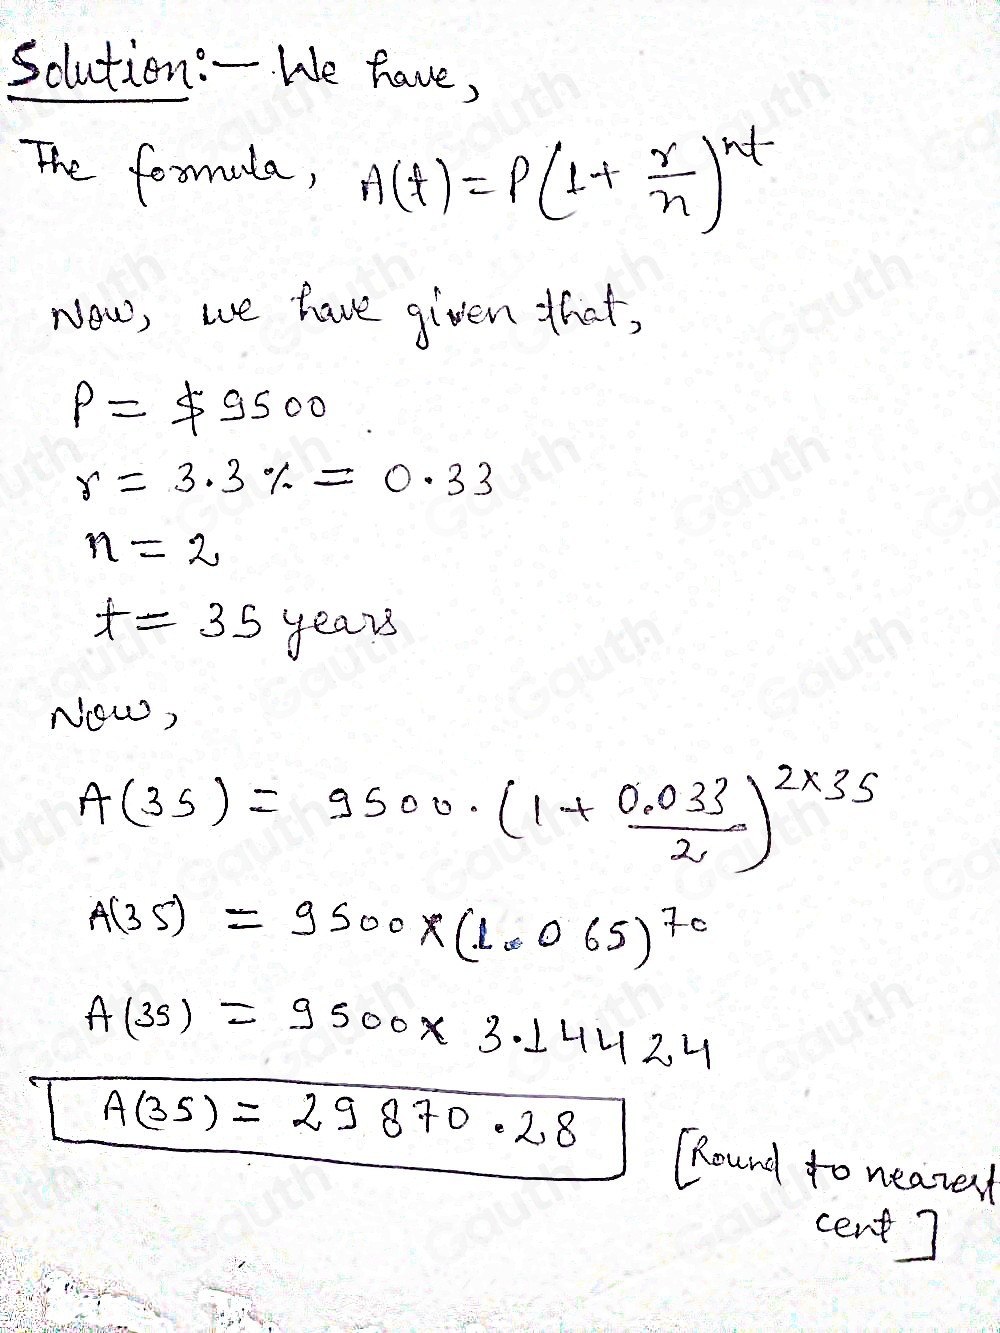 Solution:- We have,
The formula, A(t) = P(1 + r/n)^nt
Now, we have given that,
P = $9500
r = 3.3% = 0.33
n = 2
t = 35 years
Now,
A(35) = 9500.(1 + 0.033/2)^2×35
A(35) = 9500×(1.065)^70
A(35) = 9500× 3.14424
A(35) = 29870.28
[Round to nearest
cent]